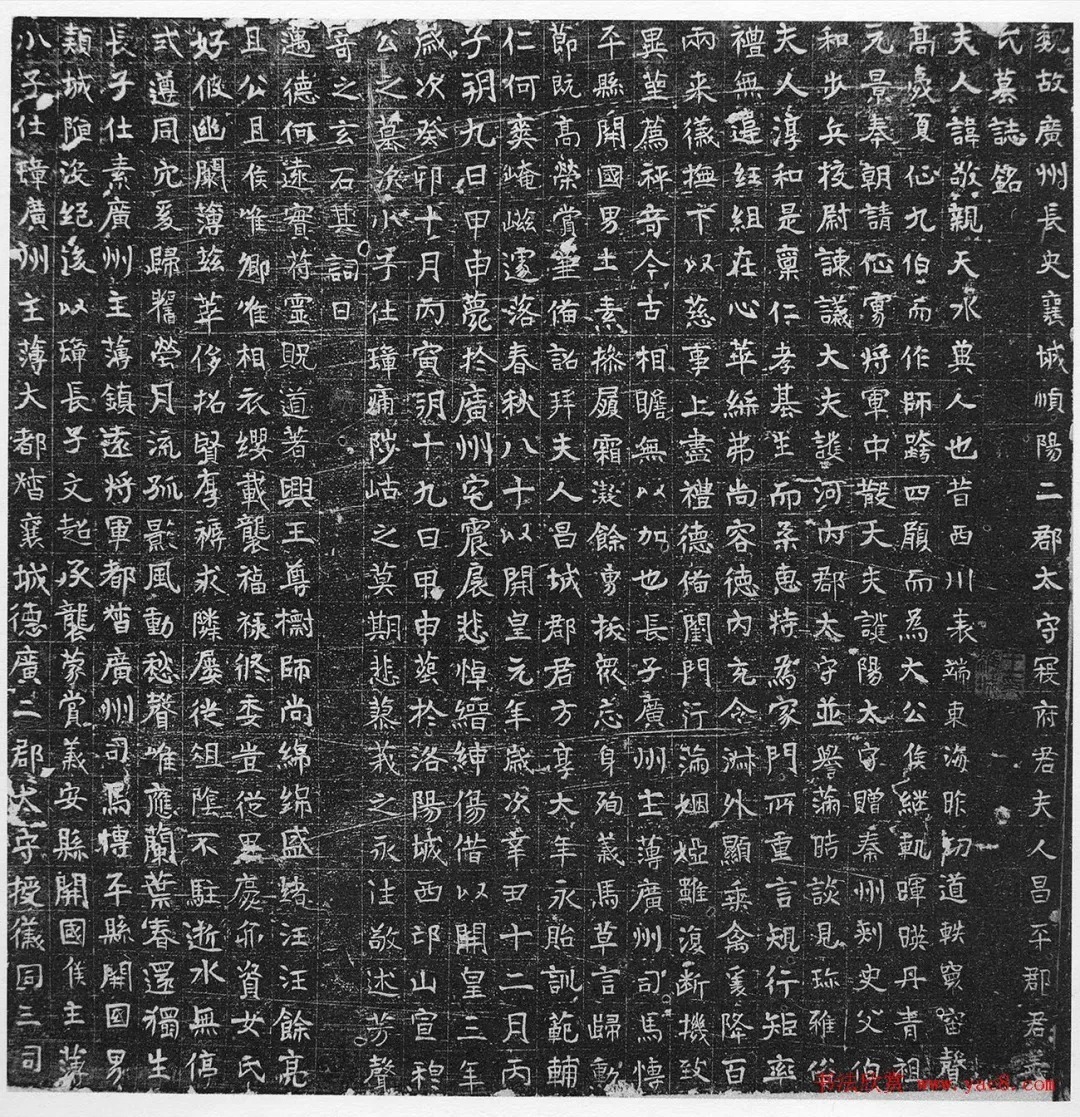 魏故廣州長史襄城順陽二郡太守寇府君夫人昌平郡君姜
氏墓誌銘
夫人諱敬親天水兾人也昔西川表端東海昨切道軼寶宙聲
高歲夏伀九伯而作師跨四顧而為大公侯継軌暉暎丹青祖
元景奉朝請伀寧將軍中散大夫譙陽太守贈秦州刺史父伯
和步兵挍尉諫議大夫譙河內郡太守並譽滿時談見珎雅俗
夫人淳和是稟仁孝基生而柔惠特為家門所重言規行矩率
禮無違紝組在心苹絲弗尚容德內充令淋外顯乗禽襄降百
兩来儀撫下以慈事上盡禮德俻閨門行滿姻婭雖復断機致
異堂薦秤竒今古相瞻無以加也長子廣州主薄廣州司馬慱
平縣開國男土素操履霜凝餘勇拔衆忘身殉義馬草言歸勲
節既高榮賞葷俻詔拜夫人昌城郡君方享大年永貽訓範輔
仁何奕崦嵫遽落春秋八十以開皇元年歲次辛丑十二月丙
子朔九日甲申薨扵廣州宅震扆悲悼縉紳傷借以開皇三年
歲次癸卯十月丙寅朔十九日甲申葬扵洛陽城西邙山宣穆
公之墓次小子仕璋痛陟岵之莫期悲蓼莪之永往敬述芳聲
寄之玄石其詞曰
邁德何遠寳荷靈貺道著興王尊擲師尚綿綿盛緒汪汪餘亮
且公且侯唯卿唯相衣纓載襲福禄攸委豈從里慶亦資女氏
好攸幽闌薄茲華侈招賢厚褥求隣屢徙俎隂不駐逝水無停
式遵同穴爰歸舊塋月流孤影風動愁聲唯應蘭葉春還獨生
長子仕素廣州主薄鎮遠將軍都督廣州司馬慱平縣開國男
頴城陋没絕後以璋長子文超承襲蒙賞義安縣開國侯主薄
小子仕璋廣州主薄大都督襄城德廣二郡太守授儀同三司
书法欣赏 www.yac8.com